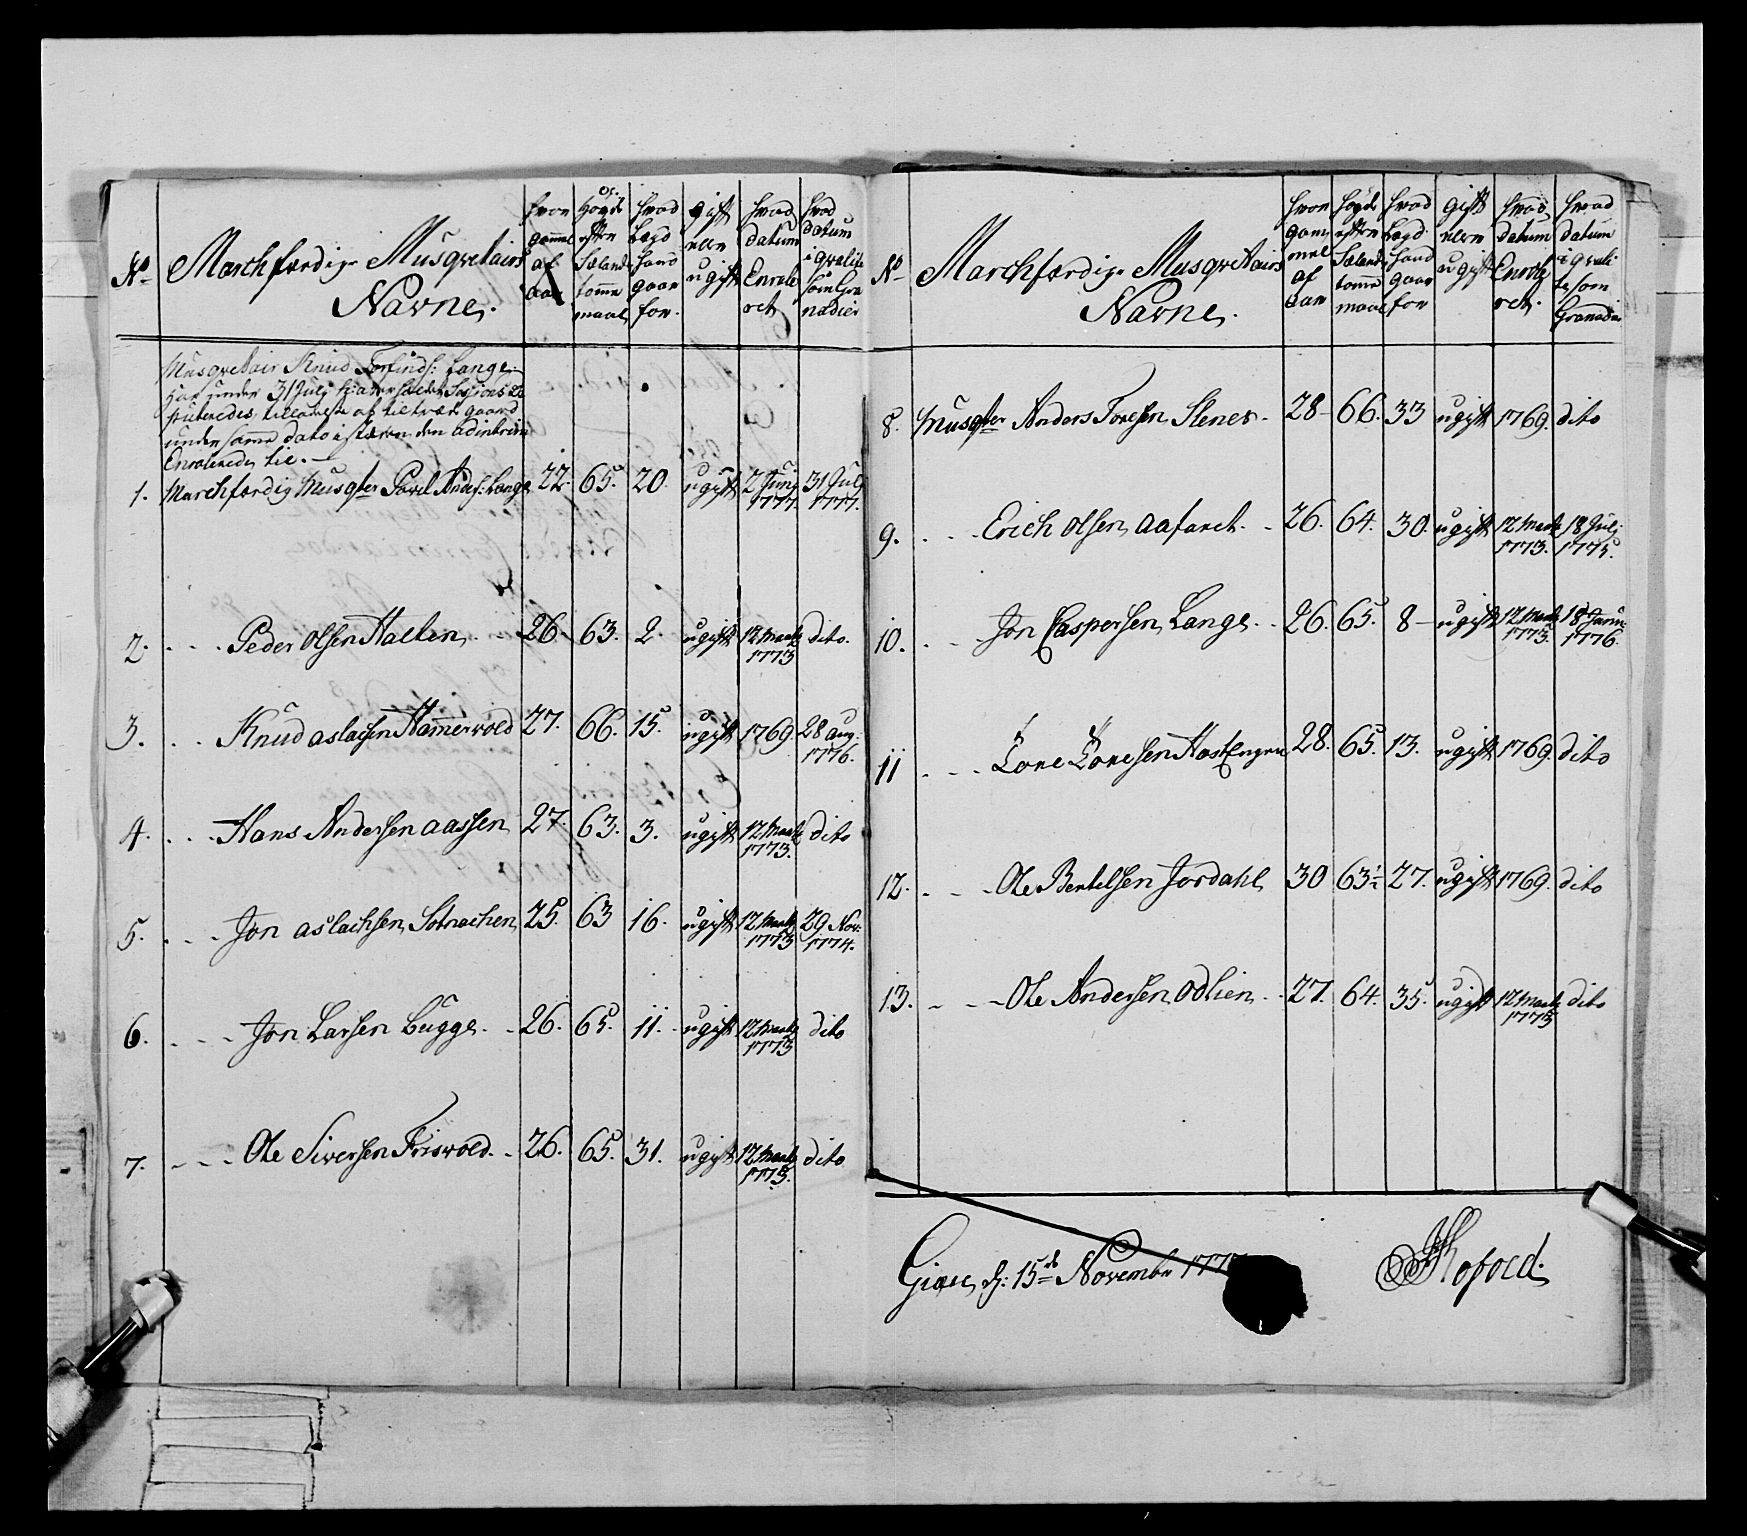 No Marchfærdige Musqvetairs Navne. hvor gammel af aar Høyde efter Siælands tomme maal hvad Lægd hand gaar for. gift eller ugift hvad datum Enrolleret hvad datum i qvalite som Granadier
Musqvetair Knud Torfinds: Lange
har under 31 Julj
under samme dato
Enrolleredes til.
1. Marchfærdig Musqter Povel Anders: Lange 22. 65. 20. ugift 2 Junj 1777. 31 Julj 1777.
2. Peder Olsen Halten 26. 63. 2. ugift 12 Martz 1773 dito.
3. Knud Aslachsen Hammervold 27. 66. 15. ugift 1769 28 Aug. 1776.
4. Hans Andersen Aassen 27. 63. 3. ugift 12 Martz 1773. dito
5. Jon Aslachsen Solnachen 25. 63 16. ugift 12 Martz 1773 29 Nov: 1774.
6. Jon Larsen Bugge 26. 65. 11. ugift 12 Martz 1773 dito
7. Ole Siversen Friswold 26. 65. 31. ugift 12 Martz 1773. dito
No Marchfærdige Musqvetairs Navne. hvor gammel af aar høyde efter Siælands tomme maal hvad Lægd hand gaar for gift eller ugift hvad datum Enrolleret. hvad datum i qvalite som Granadier
8. Musqter Anders Toresen Stener 28 66. 33 ugift 1769. dito
9. Erich Olsen Aafaret 26. 64. 30. ugift 12 Martz 1773. 18 Julj 1775.
10. Jon Caspersen Lange 26. 65. 8 ugift 12 Martz 1773. 18 Janu: 1776.
11 Tore Toresen Hostengen 28. 65. 13. ugift 1769. dito
12. Ole Bertelsen Jordahl 30 63½ 27. ugift 1769. dito
13. Ole Andersen Odlien 27. 64. 35. ugift 12 Martz 1773 dito
Giære d: 15de Novembr 1777
Kofoed.